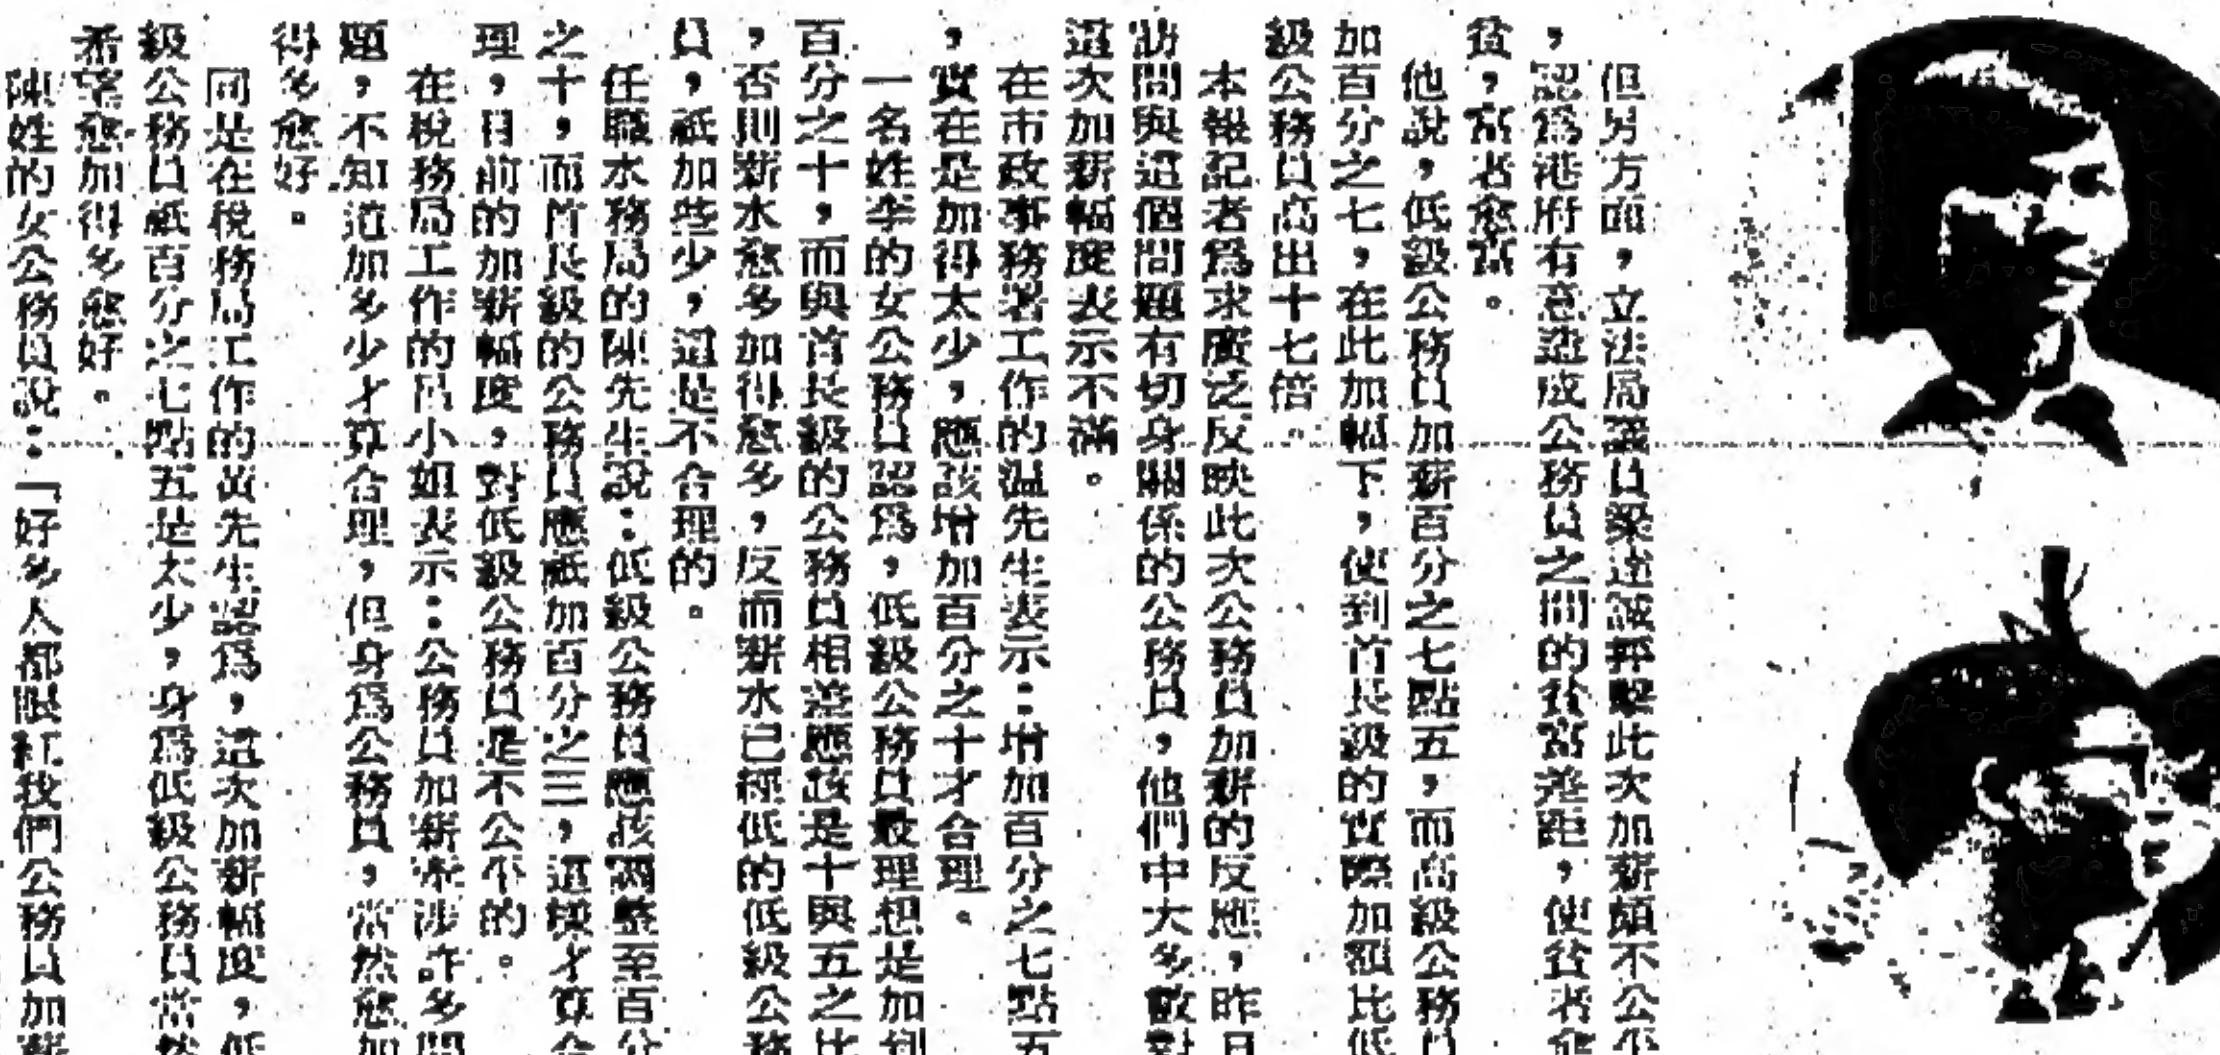 但另方面，立法局議員梁達誠抨擊此次加薪頗不公平
，認為港府有意造成公務員之間的貧富差距，使貧者愈
貧，富者愈富。
他說，低級公務員加薪百分之七點五，而高級公務員
加百分之七，在此加幅下，使到首長級的實際加額比低
級公務員高出十七倍。
本報記者為求廣泛反映此次公務員加薪的反應，昨日
訪問與這個問題有切身關係的公務員，他們中大多數對
這次加薪幅度表示不滿。
在市政事務署工作的溫先生表示：增加百分之七點五
，實在是加得太少，應該增加百分之十才合理。
一名姓李的女公務員認為，低級公務員最理想是加到
百分之十，而與首長級的公務員相差應該是十與五之比
，否則薪水愈多加得愈多，反而薪水已經低的低級公務
員，祇加些少，這是不合理的。
任職水務局的陳先生說：低級公務員應該調整至百分
之十，而首長級的公務員應祇加百分之三，這樣才算合
理，目前的加薪幅度，對低級公務員是不公平的。
在稅務局工作的呂小姐表示：公務員加薪牽涉許多問
題，不知道加多少才算合理，但身為公務員，當然愈加
得多愈好。
同是在稅務局工作的黃先生認為，這次加薪幅度，低
級公務員祇百分之七點五是太少，身為低級公務員當然
希望愈加得多愈好。
陳姓的女公務員說：「好多人都眼紅我們公務員加薪